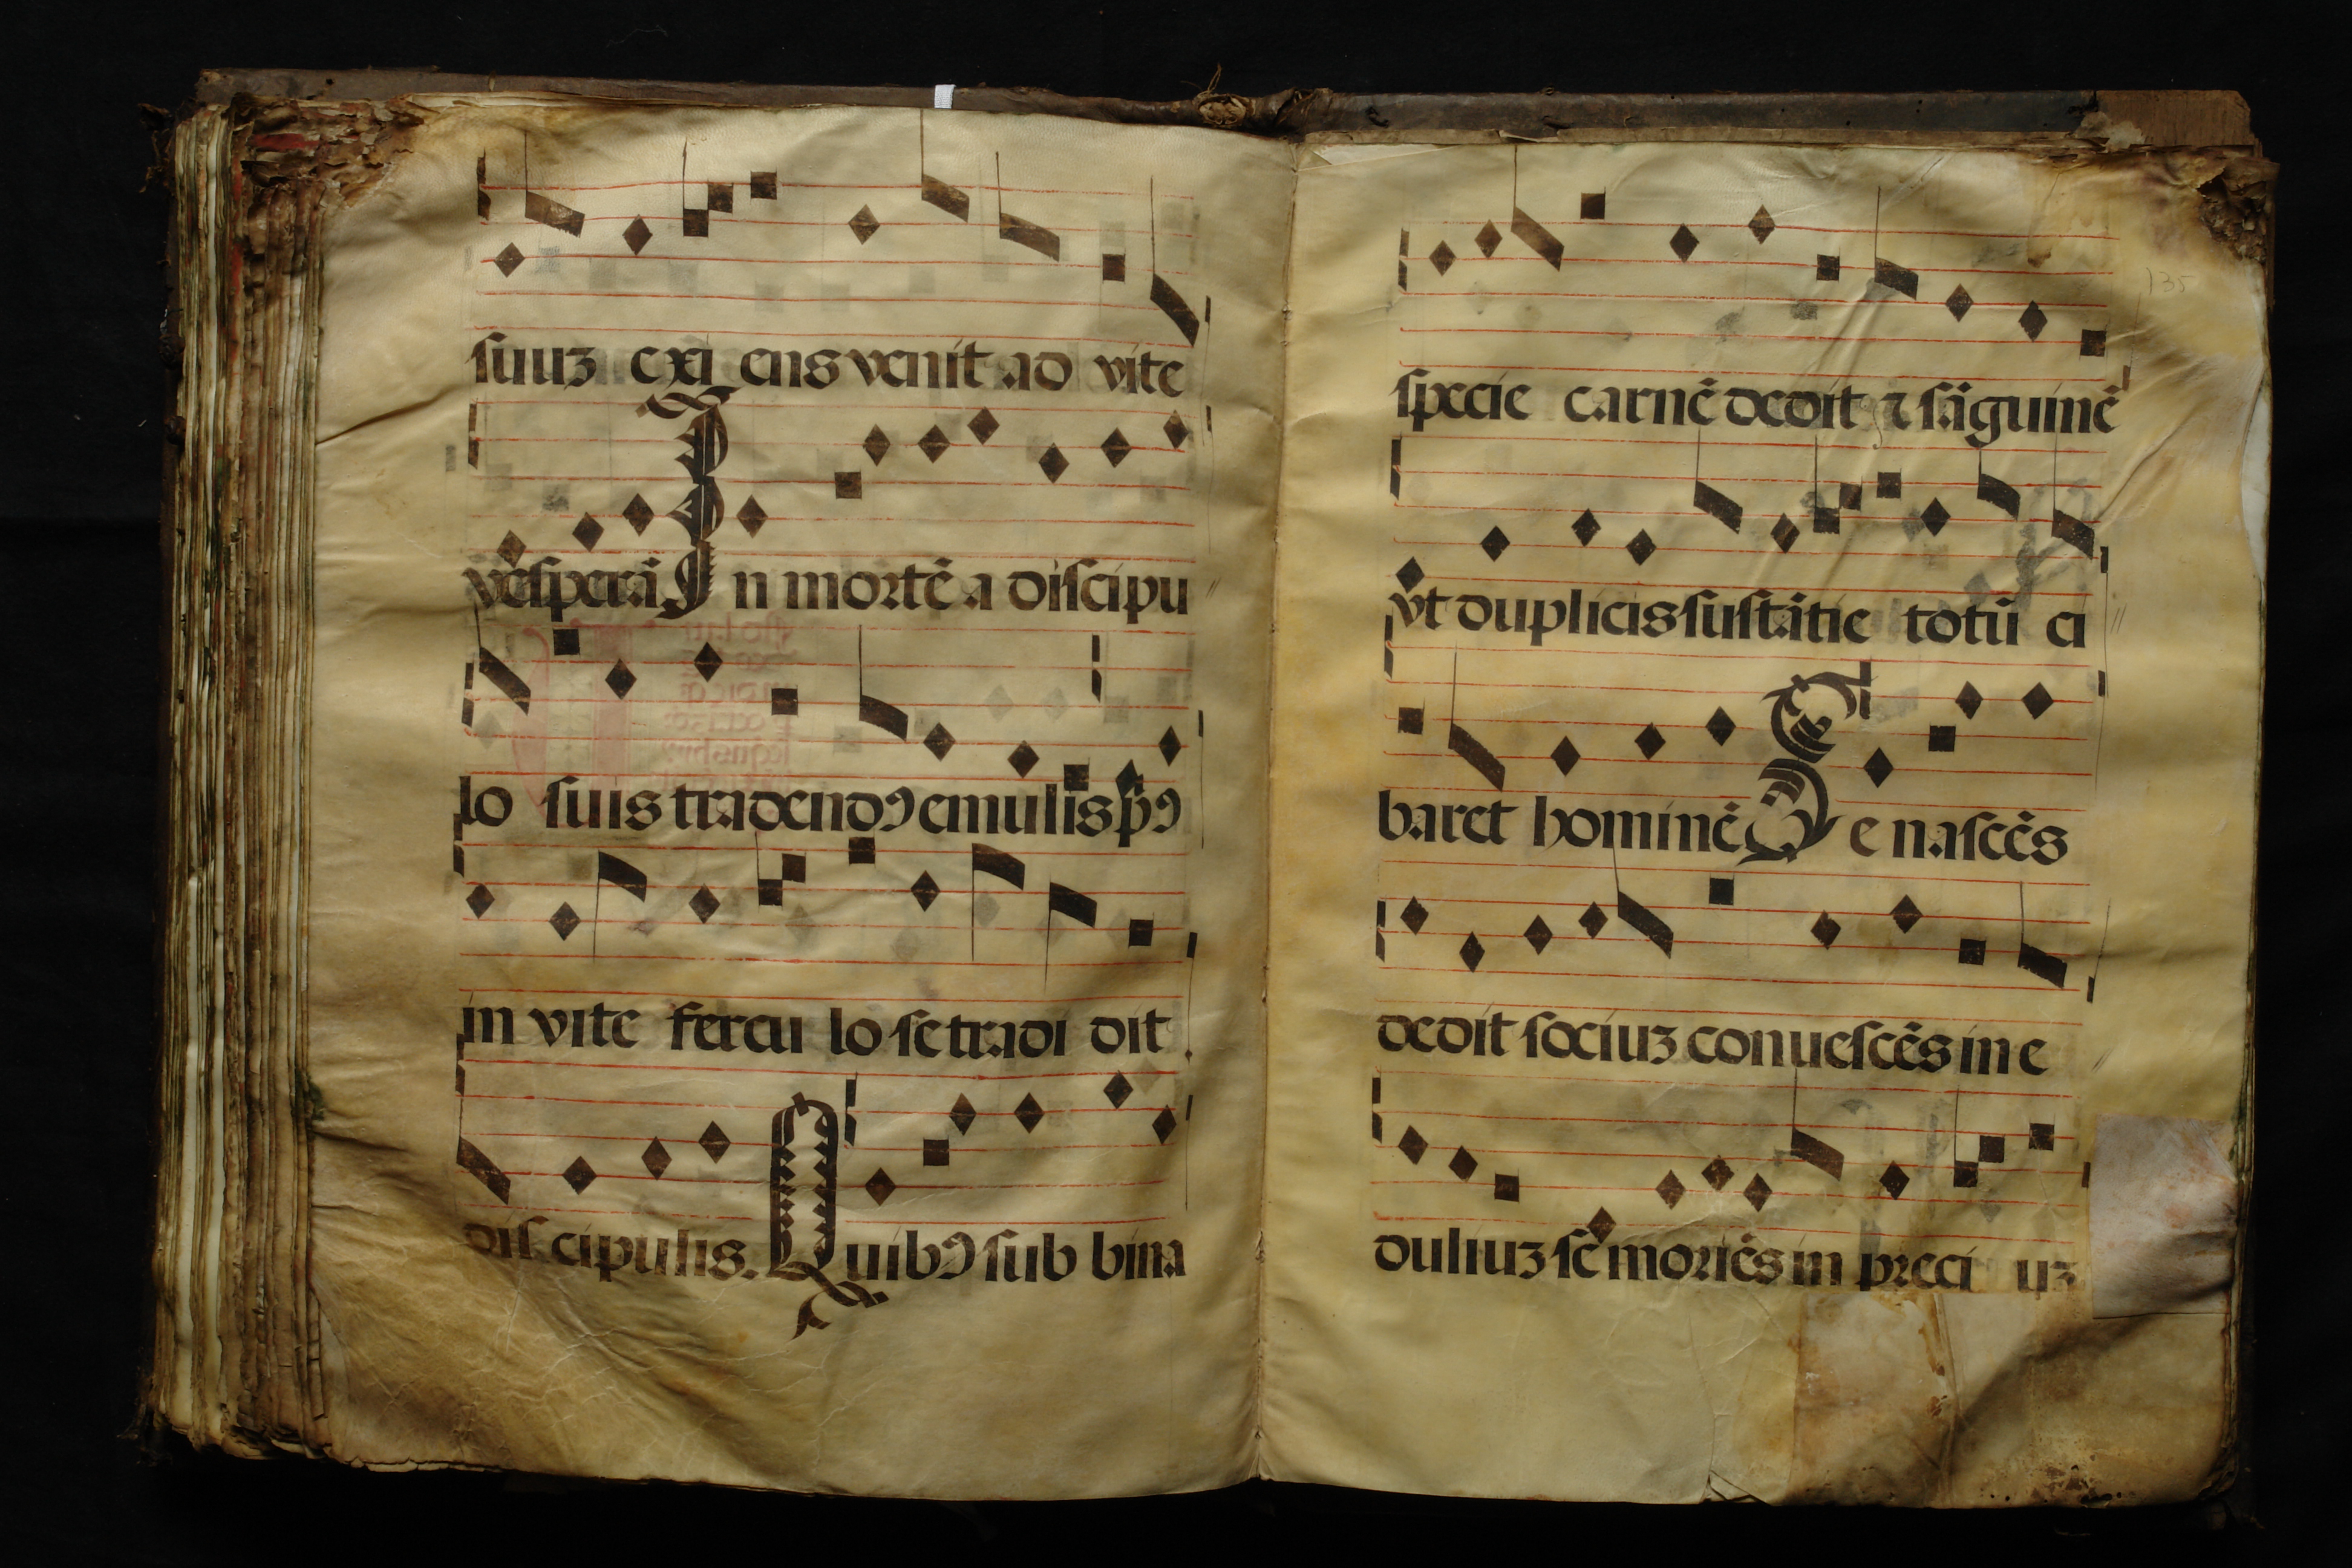 suuz exi ens venit ad vite
vesperã In mortẽ a discipu
lo suis tradendꝯ emulis pͥꝯ
in vite fercu lo se tradi dit
dis cipulis. Quibꝯ sub bina
specie carnẽ dedit ⁊ sãguinẽ
vt duplicis sustãtie totũ ci
baret hominẽ Se nascẽs
dedit sociuz conuescẽs in e
duliuz se moriẽs in preci uz
135